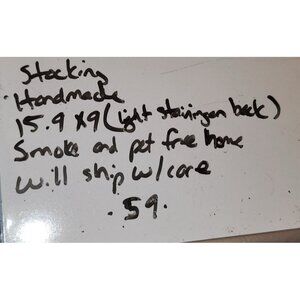 Stocking
Handmade
15.9 x 9 (light staining on back)
Smoke and pet free home
will ship w/ care
.59.